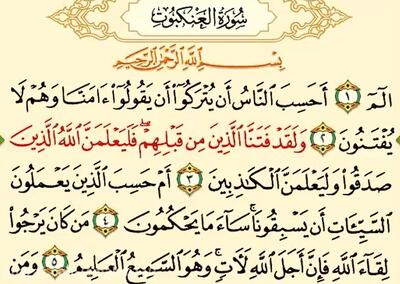 سُورَةُ الْعَنكَبُوتِ
بِسْمِ اللَّهِ الرَّحْمَٰنِ الرَّحِيمِ
الٓمٓ ١ أَحَسِبَ النَّاسُ أَن يُتْرَكُوٓا۟ أَن يَقُولُوٓا۟ ءَامَنَّا وَهُمْ لَا
يُفْتَنُونَ ٢ وَلَقَدْ فَتَنَّا الَّذِينَ مِن قَبْلِهِمْ ۖ فَلَيَعْلَمَنَّ اللَّهُ الَّذِينَ
صَدَقُوا۟ وَلَيَعْلَمَنَّ الْكَٰذِبِينَ ٣ أَمْ حَسِبَ الَّذِينَ يَعْمَلُونَ
السَّيِّـَٔاتِ أَن يَسْبِقُونَا ۚ سَآءَ مَا يَحْكُمُونَ ٤ مَن كَانَ يَرْجُوا۟
لِقَآءَ اللَّهِ فَإِنَّ أَجَلَ اللَّهِ لَـَٔاتٍ ۚ وَهُوَ السَّمِيعُ الْعَلِيمُ ٥ وَمَن